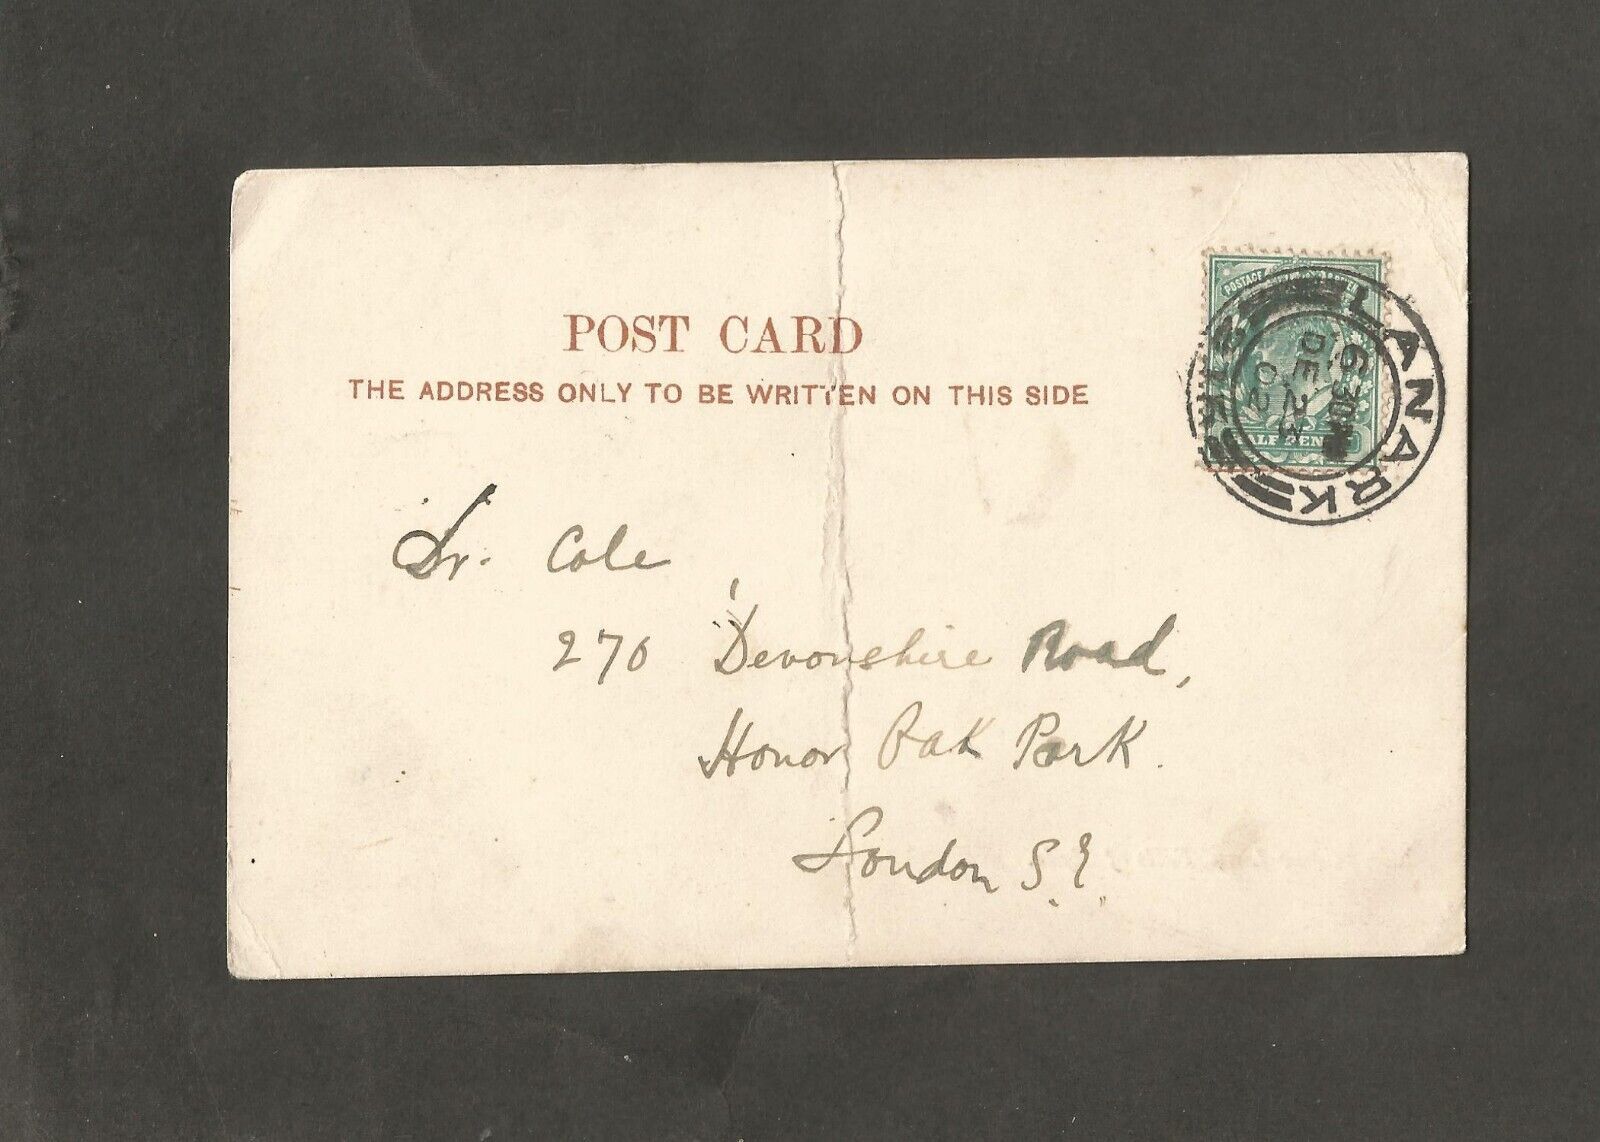 POST CARD
THE ADDRESS ONLY TO BE WRITTEN ON THIS SIDE
POSTAGE
HALF PENNY
LANARK
6 30 PM
DE 23
02
Dr. Cole
270 Devonshire Road,
Honor Oak Park.
London S.E.